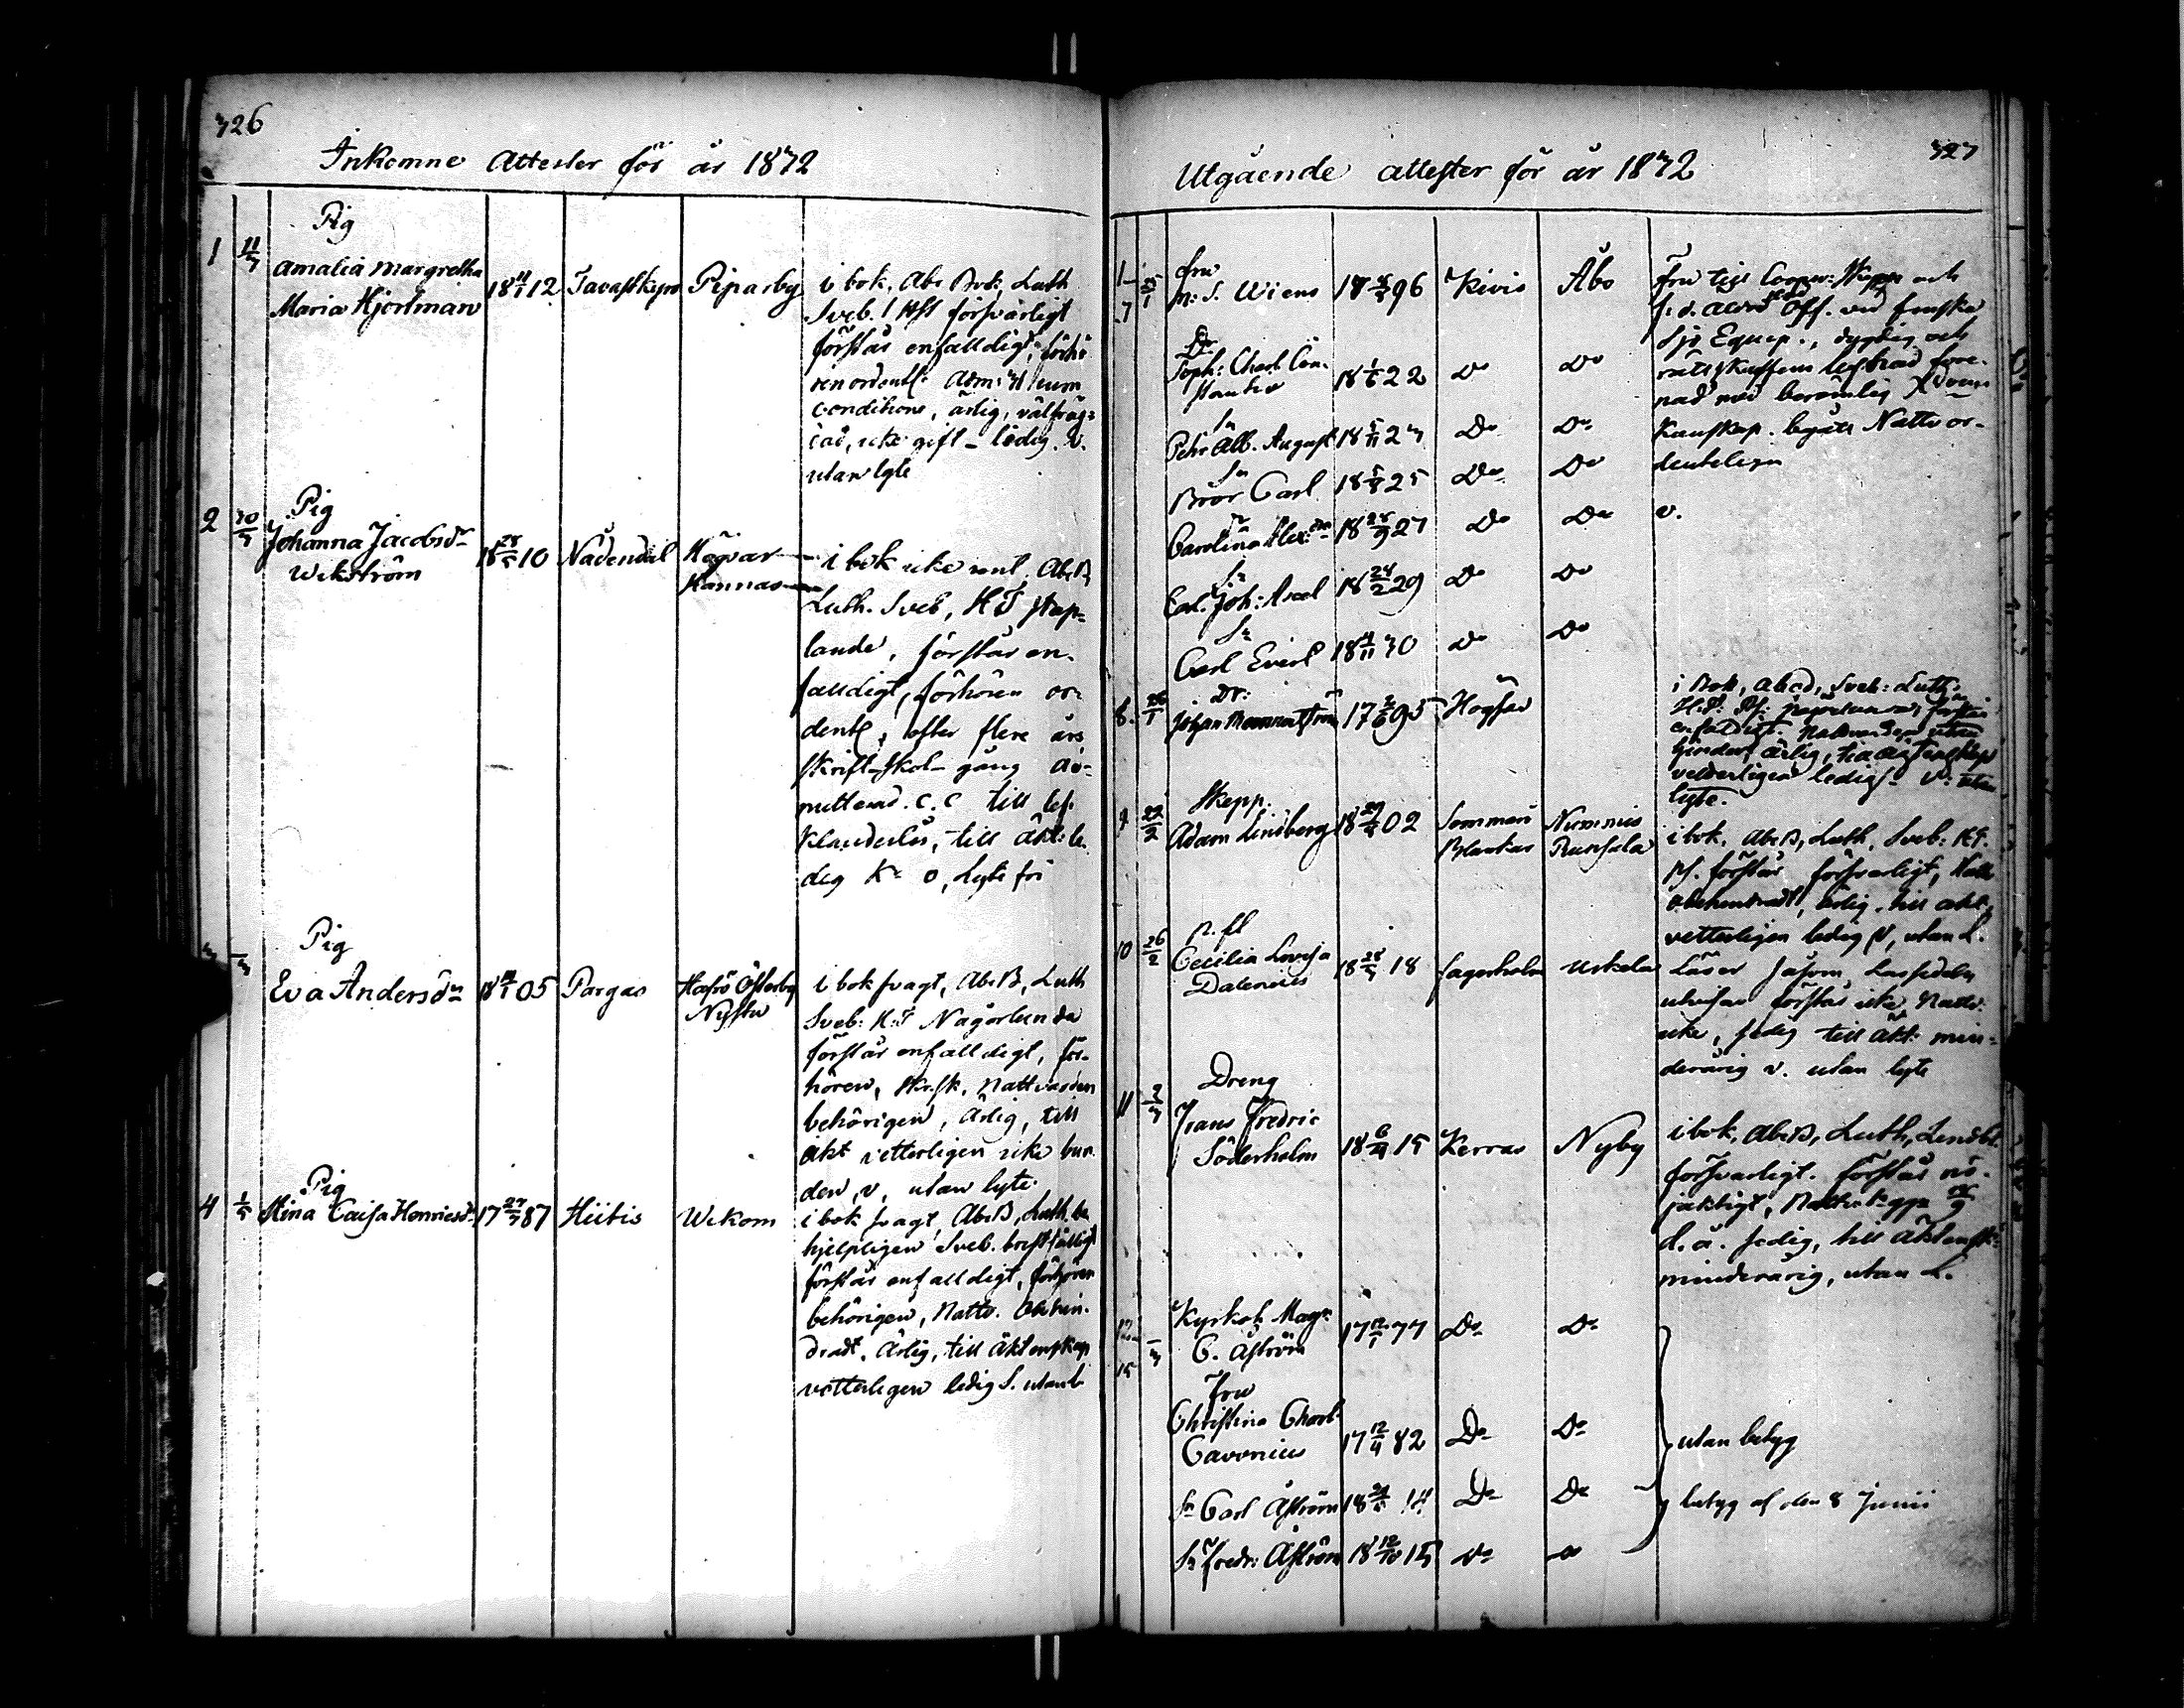 326
Inkomne Attester för år 1832
1 11/3 Pig
Amalia Margretha
Maria Hjortman
18 11/1 12 Tavastkyro Piparby
i bok, Abc Bok, Luth
Sveb. försvarligt
förstår enfalldigt, förhö
ren ordentl: Adm:
conditione, ärlig, välfräg=
dad, icke gift - ledig. v.
utan lyte
2 30/3 Pig
Johanna Jacobsdr
Wikström
18 28/5 10 Nådendal Högsar
Hannas
i bok icke rent, AbcB,
Luth. Sveb, HT stap-
lande, förstår en-
falldigt, förhören or-
dentl, efter flere års
Skrift-skol-gång ad-
mitterad. c.c till lef.
klanderlös, till äkt: le-
dig K. o, Lyte fri
3 -/3 Pig
Eva Andersdr
18 05 Pargas Hafrö Österby
Nystu
i bok svagt, AbcB, Luth
Sveb: H:T Någorlunda
förstår enfalldigt, för-
hören, Skr.sk. Nattvarden
behörigen, Ärlig, till
äkt vetterligen icke bun-
den, v, utan lyte
4 1/5 Pig
Mina Caisa Henricsdr
17 27/3 87 Hiitis Wikom
i bok svagt, AbcB, Luth. be
hjelpligen Sveb. bristfälligt
förstår enfalldigt, förhören
behörigen, Nattv. Obehin-
dradt, Ärlig, till äktenskap
vetterligen ledig S. utan L
327
Utgående attester för år 1832
1-7 25/1 fru
M: S. Wiens 18 96 Kivis Åbo
fru till och
f. d. Off. vid finska
Sjö Equip., dygdig och
rättskaffens lefnad före-
nad med berömlig Xdoms
kunskap. begått Nattv or-
denteligen
Dr
Soph: Charl Con-
stantia 18 1/6 22 Do Do
Sn
Pehr Alb. August 18 5/11 23 Do Do
Sn
Bror Carl 18 5/8 25 Do Do
Dr
Carolina Alex: 18 28/9 27 Do Do v.
Sn
Carl. Joh: Axel 18 24/2 29 Do Do
Sn
Carl Evert 18 11/11 30 Do Do
8. 26/1 Dr:
Johan 17 95 Högsar
i Bok, Abcd, Sveb: Luth.
enfaldigt. Nattvarden utan
hinder, ärlig, till äktenskap
vetterligen ledig. V: utan
lyte.
9 22/2 Skepp.
Adam Lindberg 18 02 Sommari
Numnis
Runsala
i bok, AbcB, Luth, Sveb: HT.
Pf. förstår försvarligt, Nattv
obehindradt, ärlig, till äkt.
vetterligen ledig V, utan L.
10 26/2 p. fl
Cecilia Lovisa
Dalenius 18 28/3 18 fagerholm Uskela
Läser såsom Lässedeln
utvisar förstår icke, Nattv:
icke, ledig till äkt: min-
derårig v. utan lyte
11 2/3 Dreng
Frans Fredric
Söderholm 18 15 Kerras Nyby
i bok, AbcB, Luth, Lindbl.
försvarligt. förstår nö-
jaktigt, Nattv. begg
d. å. ledig, till äktensk:
minderårig, utan L.
12-15 -/3 Kyrkoh Mag:
C. Åström 17 77 Do Do
fru
Christina Charl
Cavonius 17 12/4 82 Do Do
utan betyg
Sn Carl Åström 18 14 Do Do
betyg af den 8 Junii
Sn fredr: Åström 18 12/10 15 Do Do